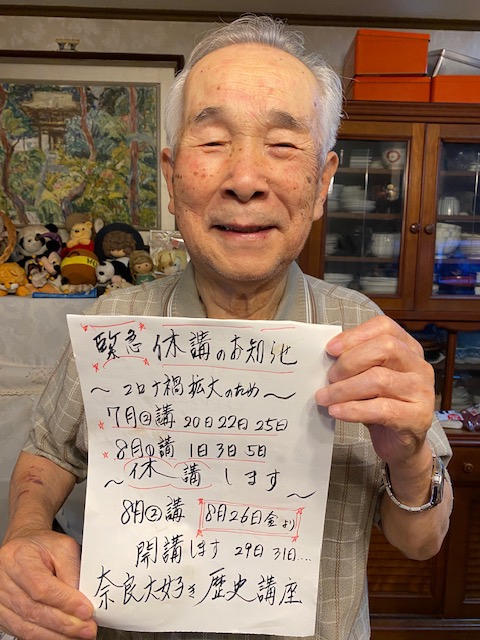 緊急 休講のお知池
～コロナ禍拡大のため～
7月②講 20日22日25日
8月①講 1日3日5日
～休講します～
8月②講 8月26日金より
開講します 29日31日....
奈良大好き歴史講座